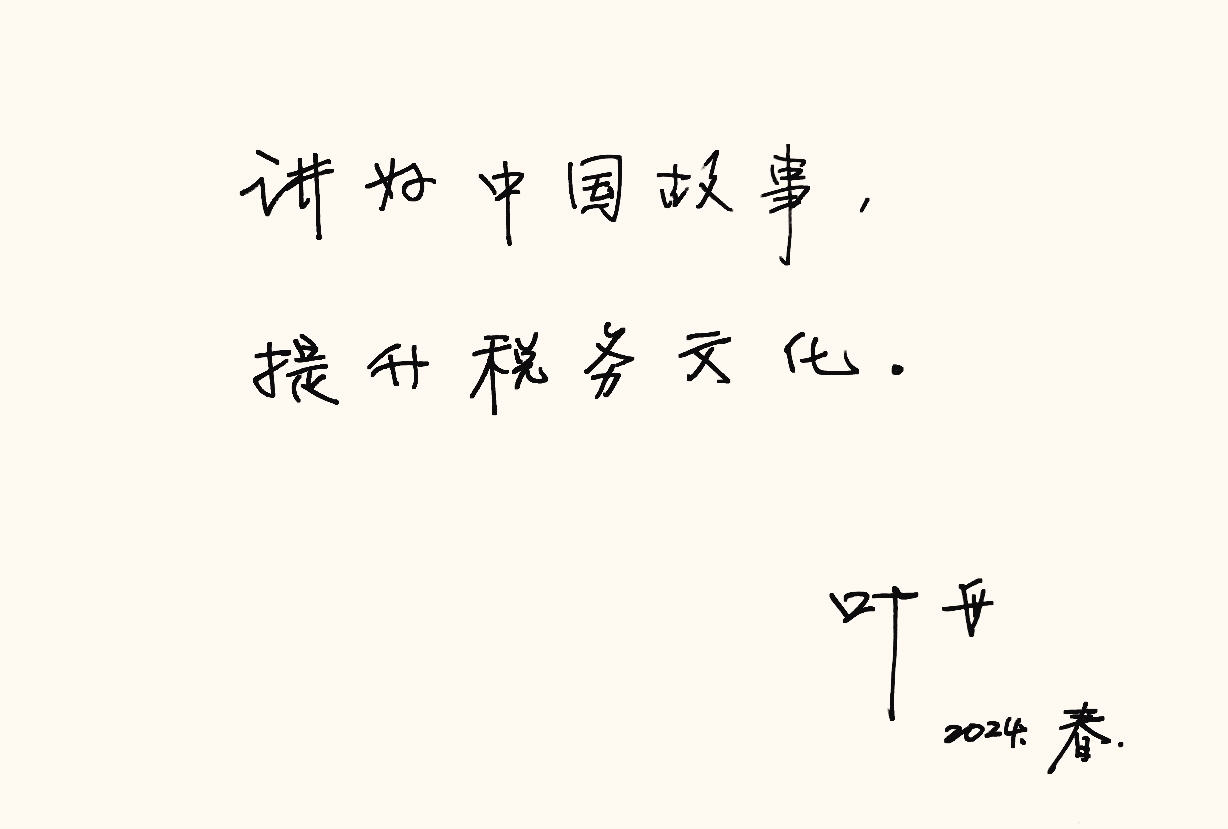 讲好中国故事,
提升税务文化.
叶开
2024.春.